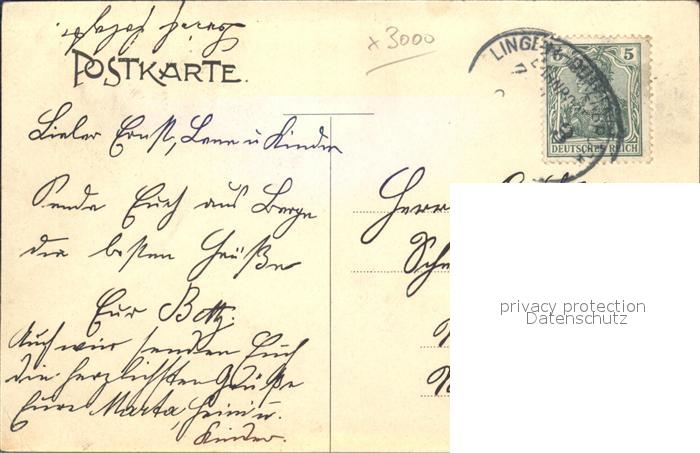 x 3000
POSTKARTE.
LINGEN
5
DEUTSCHES REICH
Lieber Ernst, Lene u Kinder
Sende Euch aus Berge
die besten Grüße
Eur
Auch wir senden Euch
die herzlichsten Grüße
Eure Marta, Heini u.
Kinder.
Herrn
privacy protection
Datenschutz